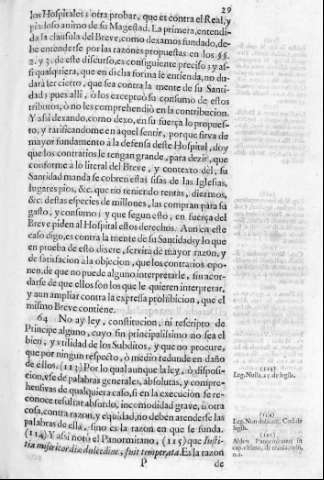 29
los Hospitales: otra probar, que es contra el Real, y
piadoso animo de su Magestad. La primera, entendi-
da la clausula del Breve, como dexamos fundado, de-
be entenderse por las razones propuestas en los §§.
2. y 3. de este discurso, es consiguiente preciso; y as-
si qualquiera, que en dicha forma le entienda, no du-
dará ser cierto, que sea contra la mente de su Santi-
dad; pues allí, ò los exceptuò su consumo de estos
tributos, ò no les comprehendiò en la contribucion.
Y assi dexando, como dexo, en su fuerça lo propues-
to, y ratificandome en aquel sentir, porque sirva de
mayor fundamento à la defensa deste Hospital, doy
que los contrarios le tengan grande, para dezir, que
conforme à lo literal del Breve, y contexto del, su
Santidad manda se cobren estas sisas de las Iglesias,
lugares pios, &c. que no teniendo rentas, diezmos,
&c. destas especies de millones, las compran para su
gasto, y consumo; y que segun esto, en fuerça del
Breve piden al Hospital estos derechos. Aun en este
caso digo, es contra la mente de su Santidad; y lo que
en prueba de esto dixere, servirà de mayor razon, y
de satisfacion à la objecion, que los contrarios opo-
nen, de que no puede alguno interpretarle, sin acor-
darse de que ellos son los que le quieren interpretar,
y aun ampliar contra la expressa prohibicion, que el
mismo Breve contiene.
64 No ay ley, constitucion, ni rescripto de
Principe alguno, cuyo fin principalissimo no sea el
bien, y utilidad de los Subditos, y que no procure,
que por ningun respecto, ò medio redunde en daño
de ellos. (113) Por lo qual aunque la ley, ò disposi-
cion, vse de palabras generales, absolutas, y compre-
hensivas de qualquiera caso, si en la execucion se re-
conoce resultar absurdo, incomodidad grave, ù otra
cosa, contra razon, y equidad, no deben atenderse las
palabras de ella, sino es la razon en que se funda.
(114) Y assi notò el Panormitano, (115) que Iusti-
tia misericordiæ dulcedine, fuit temperata. Es la razon
P de
(113)
Leg. Nulla, 25. de legib.
(114)
Leg. Non dubium, Cod. de
legib.
(115)
Abbas Panormitano in